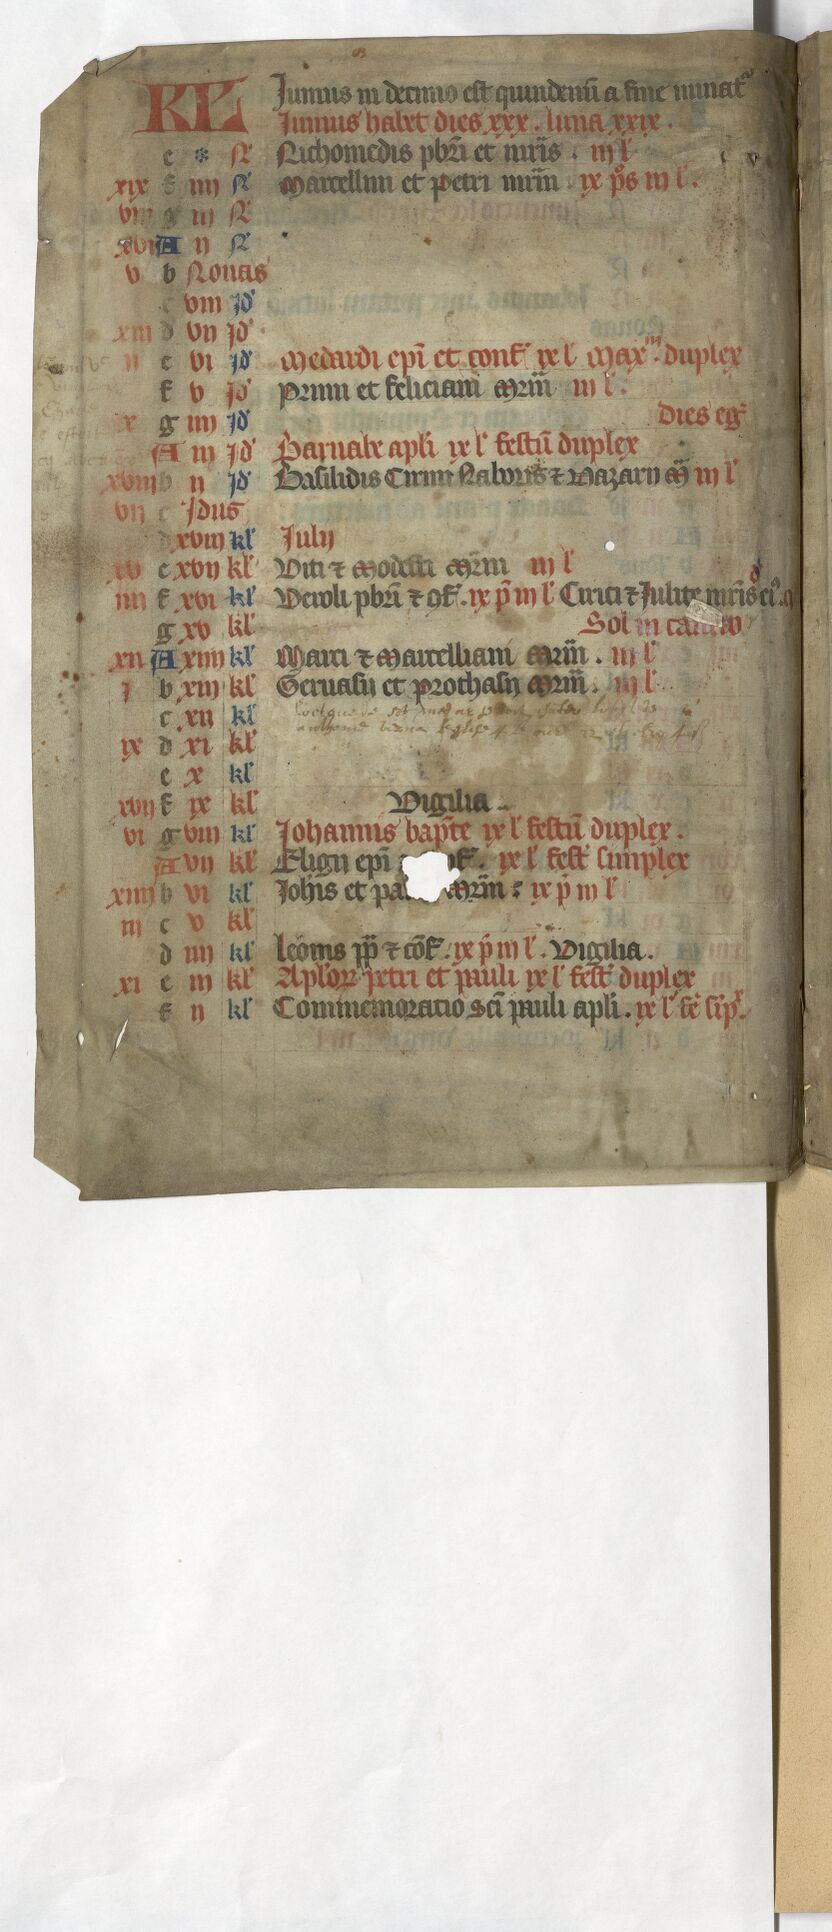 KL Junius in decimo est quindenũ a fine minat᷑
Junius habet dies xxx . luna xxix .
e * N Nichomedis pbr̃i et mr̃is . iii l̾
xix f iiii N Marcellini et petri mr̃m ix p̃s iii l̾ .
viii g iii N
xvi A ii N
v b Nonas
c viii Jd̾
xiii d vii Jd̾
ii e vi Jd̾ Medardi ep̃i et conf̾ ix l̾ Max᷑ . duplex
f v Jd̾ Primi et feliciani mr̃m iii l̾ .
x g iiii Jd̾ Dies eg̾
A iii Jd̾ Barnabe apl̃i ix l̾ festũ duplex
xviii b ii Jd̾ Basilidis Cirini Naboris ⁊ Nazarij m̃ iii l̾
vii c Jdus
d xviii kl̾ Julij
xv e xvii kl̾ Viti ⁊ Modesti mr̃m iii l̾
iiii f xvi kl̾ Veroli pbr̃i ⁊ ꝯf̾ . ix p̃ iii l̾ Cirici ⁊ Julite mr̃is
g xv kl̾ Sol in cancro
xii A xiiii kl̾ Marci ⁊ Marcelliani mr̃m . iii l̾
i b xiii kl̾ Geruasij et prothasij mr̃m . iii l̾
c xii kl̾
ix d xi kl̾
e x kl̾
xvii f ix kl̾ Vigilia
vi g viii kl̾ Johannis bap̃te ix l̾ festũ duplex .
A vii kl̾ Eligij ep̃i . ix l̾ fest̾ simplex
xiiii b vi kl̾ Joh̃is et pa mr̃m ix p̃ iii l̾
iii c v kl̾
d iiii kl̾ leonis pp̃ ⁊ cõf̾ . ix p̃ iii l̾ . Vigilia .
xi e iii kl̾ Apl̃oꝝ petri et pauli ix l̾ fest̾ duplex
f ii kl̾ Commemoratio sc̃i pauli apl̃i . ix l̾ fẽ sip̃x